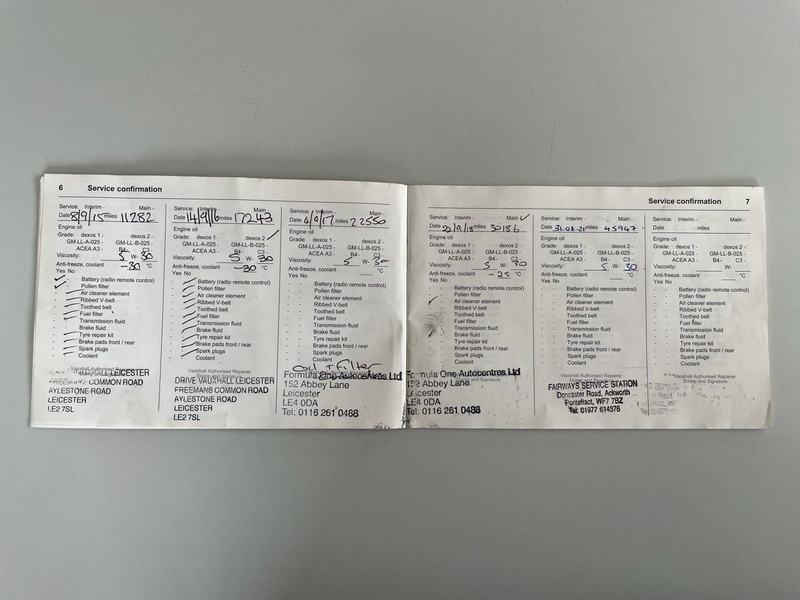 6 Service confirmation
Service: Interim - Main -
Date 8/9/15 miles 11282
Engine oil
Grade: dexos 1 - dexos 2 -
GM-LL-A-025 - GM-LL-B-025 -
ACEA A3 - B4- C3 -
Viscosity: 5 W- 30
Anti-freeze, coolant -30 °C
Yes No
Battery (radio remote control)
Pollen filter
Air cleaner element
Ribbed V-belt
Toothed belt
Fuel filter
Transmission fluid
Brake fluid
Tyre repair kit
Brake pads front / rear
Spark plugs
Coolant
Vauxhall Authorised Repairer
LEICESTER
FREEMANS COMMON ROAD
AYLESTONE ROAD
LEICESTER
LE2 7SL
Service: Interim - Main -
Date 14/9/16 miles 17243
Engine oil
Grade: dexos 1 - dexos 2 -
GM-LL-A-025 - GM-LL-B-025 -
ACEA A3 - B4- C3 -
Viscosity: 5 W- 30
Anti-freeze, coolant -30 °C
Yes No
Battery (radio remote control)
Pollen filter
Air cleaner element
Ribbed V-belt
Toothed belt
Fuel filter
Transmission fluid
Brake fluid
Tyre repair kit
Brake pads front / rear
Spark plugs
Coolant
Vauxhall Authorised Repairer
DRIVE VAUXHALL LEICESTER
FREEMANS COMMON ROAD
AYLESTONE ROAD
LEICESTER
LE2 7SL
Service: Interim - Main -
Date 4/9/17 miles 22550
Engine oil
Grade: dexos 1 - dexos 2 -
GM-LL-A-025 - GM-LL-B-025 -
ACEA A3 - B4- C3 -
Viscosity: 5 W- 30
Anti-freeze, coolant °C
Yes No
Battery (radio remote control)
Pollen filter
Air cleaner element
Ribbed V-belt
Toothed belt
Fuel filter
Transmission fluid
Brake fluid
Tyre repair kit
Brake pads front / rear
Spark plugs
Coolant
Oil + Filter
Formula One Autocentres Ltd
152 Abbey Lane
Leicester
LE4 0DA
Tel: 0116 261 0488
Service confirmation 7
Service: Interim - Main -
Date 22/9/18 miles 30186
Engine oil
Grade: dexos 1 - dexos 2 -
GM-LL-A-025 - GM-LL-B-025 -
ACEA A3 - B4- C3 -
Viscosity: 5 W- 30
Anti-freeze, coolant -25 °C
Yes No
Battery (radio remote control)
Pollen filter
Air cleaner element
Ribbed V-belt
Toothed belt
Fuel filter
Transmission fluid
Brake fluid
Tyre repair kit
Brake pads front / rear
Spark plugs
Coolant
Formula One Autocentres Ltd
152 Abbey Lane
Leicester
LE4 0DA
Tel: 0116 261 0488
Service: Interim - Main -
Date 31.08.21 miles 45947
Engine oil
Grade: dexos 1 - dexos 2 -
GM-LL-A-025 - GM-LL-B-025 -
ACEA A3 - B4- C3 -
Viscosity: 5 W- 30
Anti-freeze, coolant °C
Yes No
Battery (radio remote control)
Pollen filter
Air cleaner element
Ribbed V-belt
Toothed belt
Fuel filter
Transmission fluid
Brake fluid
Tyre repair kit
Brake pads front / rear
Spark plugs
Coolant
Vauxhall Authorised Repairer
FAIRWAYS SERVICE STATION
Doncaster Road, Ackworth
Pontefract, WF7 7BZ
Tel: 01977 614376
Service: Interim - Main -
Date miles
Engine oil
Grade: dexos 1 - dexos 2 -
GM-LL-A-025 - GM-LL-B-025 -
ACEA A3 - B4- C3 -
Viscosity: W-
Anti-freeze, coolant °C
Yes No
Battery (radio remote control)
Pollen filter
Air cleaner element
Ribbed V-belt
Toothed belt
Fuel filter
Transmission fluid
Brake fluid
Tyre repair kit
Brake pads front / rear
Spark plugs
Coolant
Vauxhall Authorised Repairer
Stamp and Signature